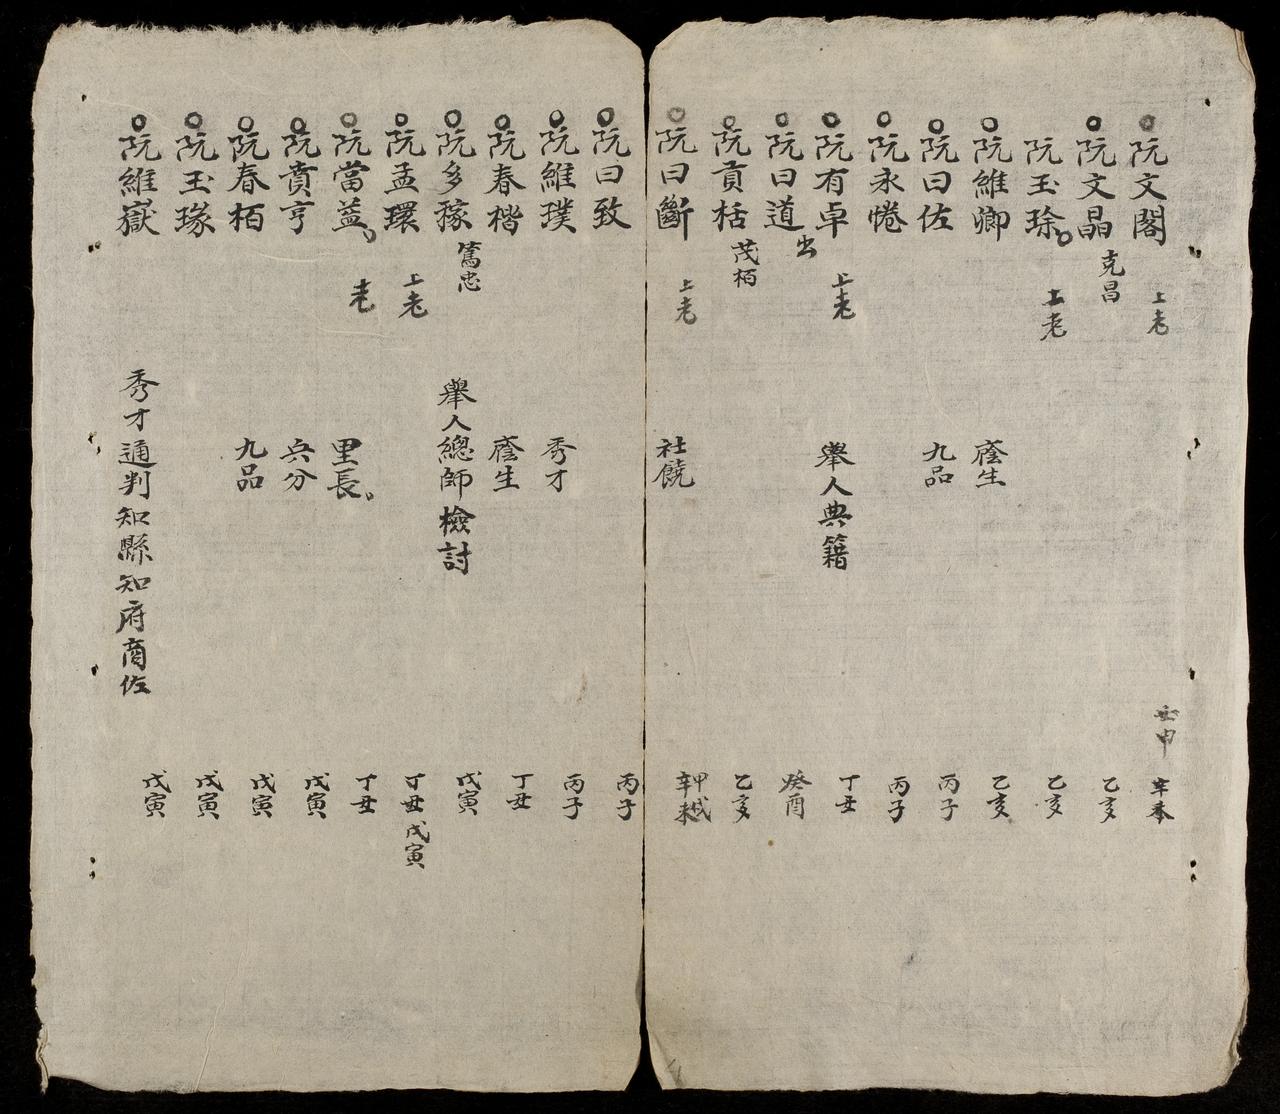 阮文閣 上老 壬申 辛未
阮文晶 克昌 乙亥
阮玉珍 上老 乙亥
阮維卿 廕生 乙亥
阮曰佐 九品 丙子
阮永惓 丙子
阮有卓 上老 舉人典籍 丁丑
阮曰道 出 癸酉
阮貢栝 茂栢 乙亥
阮曰斷 上老 社饒 辛未 甲戌
阮曰致 丙子
阮維璞 秀才 丙子
阮春楷 廕生 丁丑
阮多稼 篤忠 舉人總師檢討 戊寅
阮孟環 上老 丁丑 戊寅
阮當益 老 里長 丁丑
阮賁亨 兵分 戊寅
阮春栢 九品 戊寅
阮玉瑑 戊寅
阮維嶽 秀才通判知縣知府商佐 戊寅